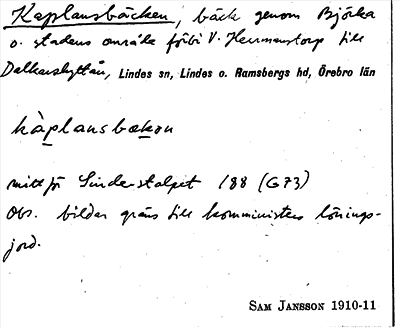 Kaplansbäcken, bäck genom Björka
o. stadens område förbi V. Hermanstorp till
Dalkarshyttån, Lindes sn, Lindes o. Ramsbergs hd, Örebro län
kàplansbækɵn
mitt för Linde stolpet 188 (G73)
Obs. bildar gräns till komministers lönings-
jord.
SAM JANSSON 1910-11